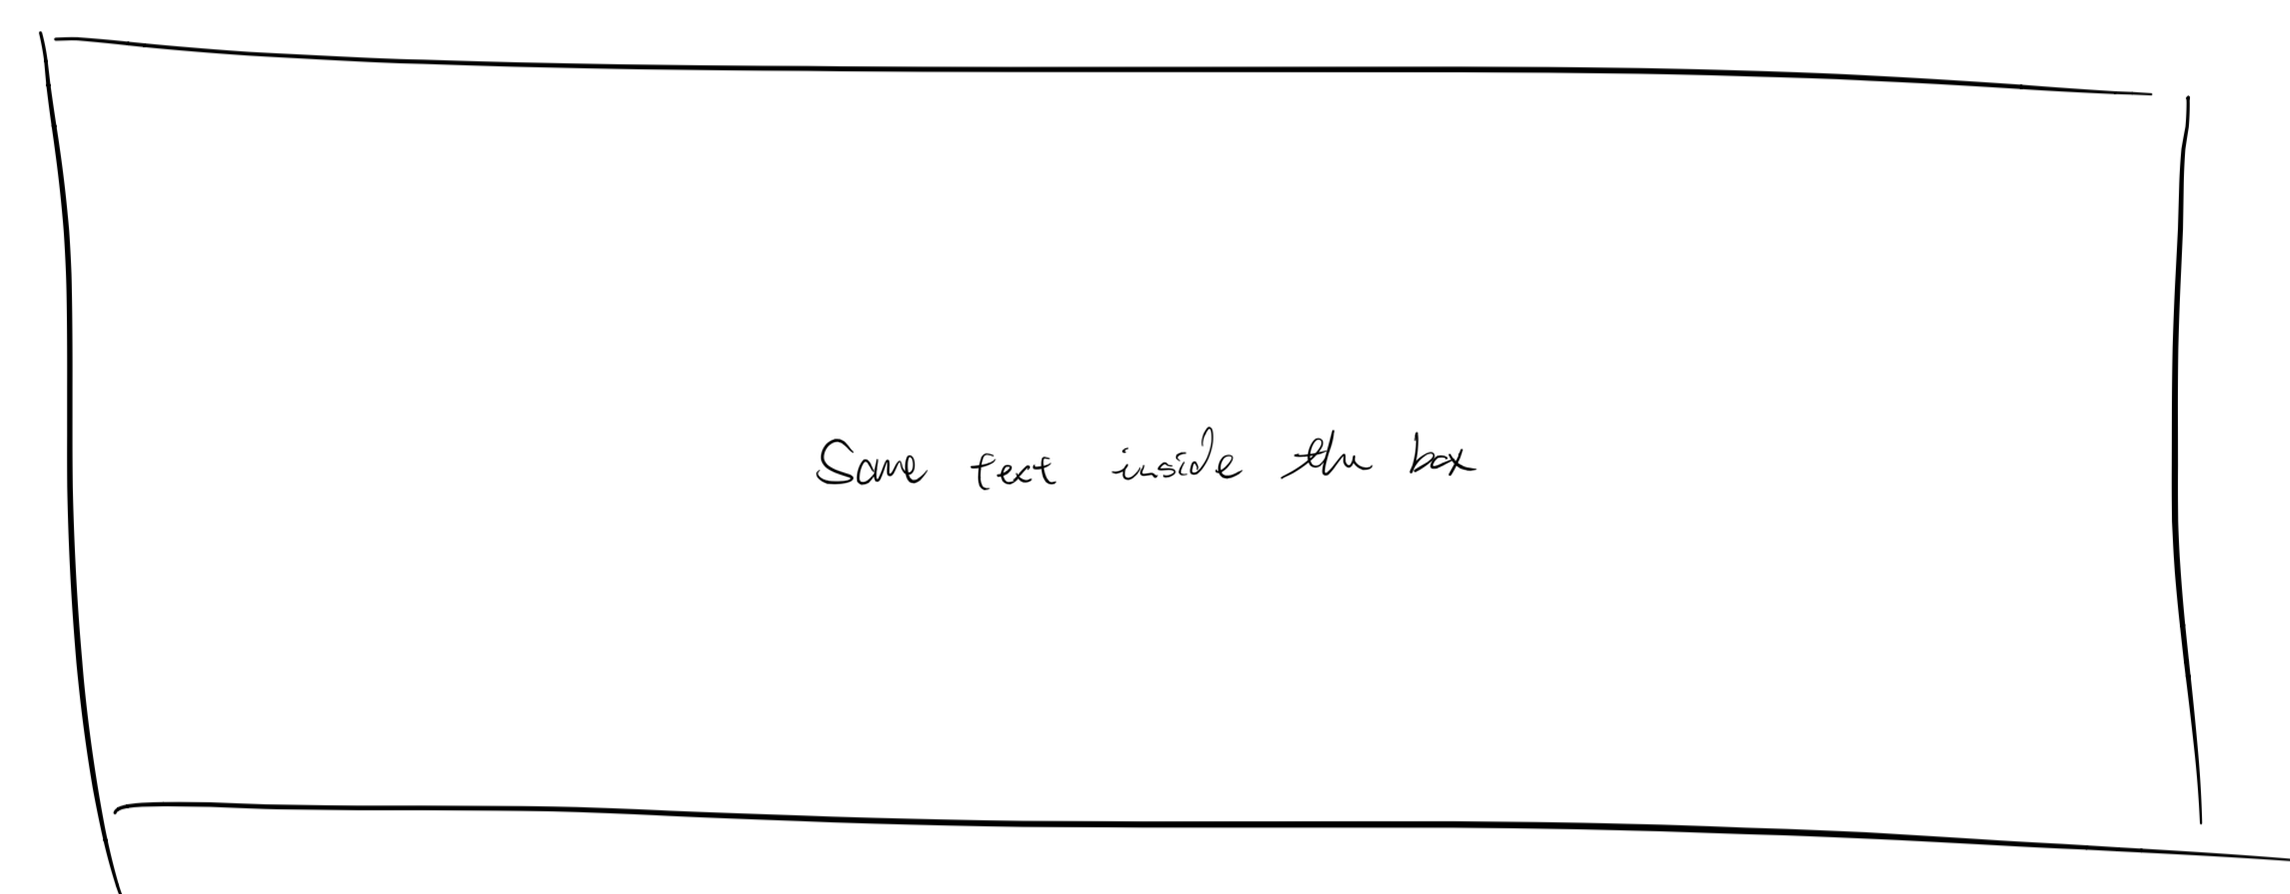 Some text inside the box